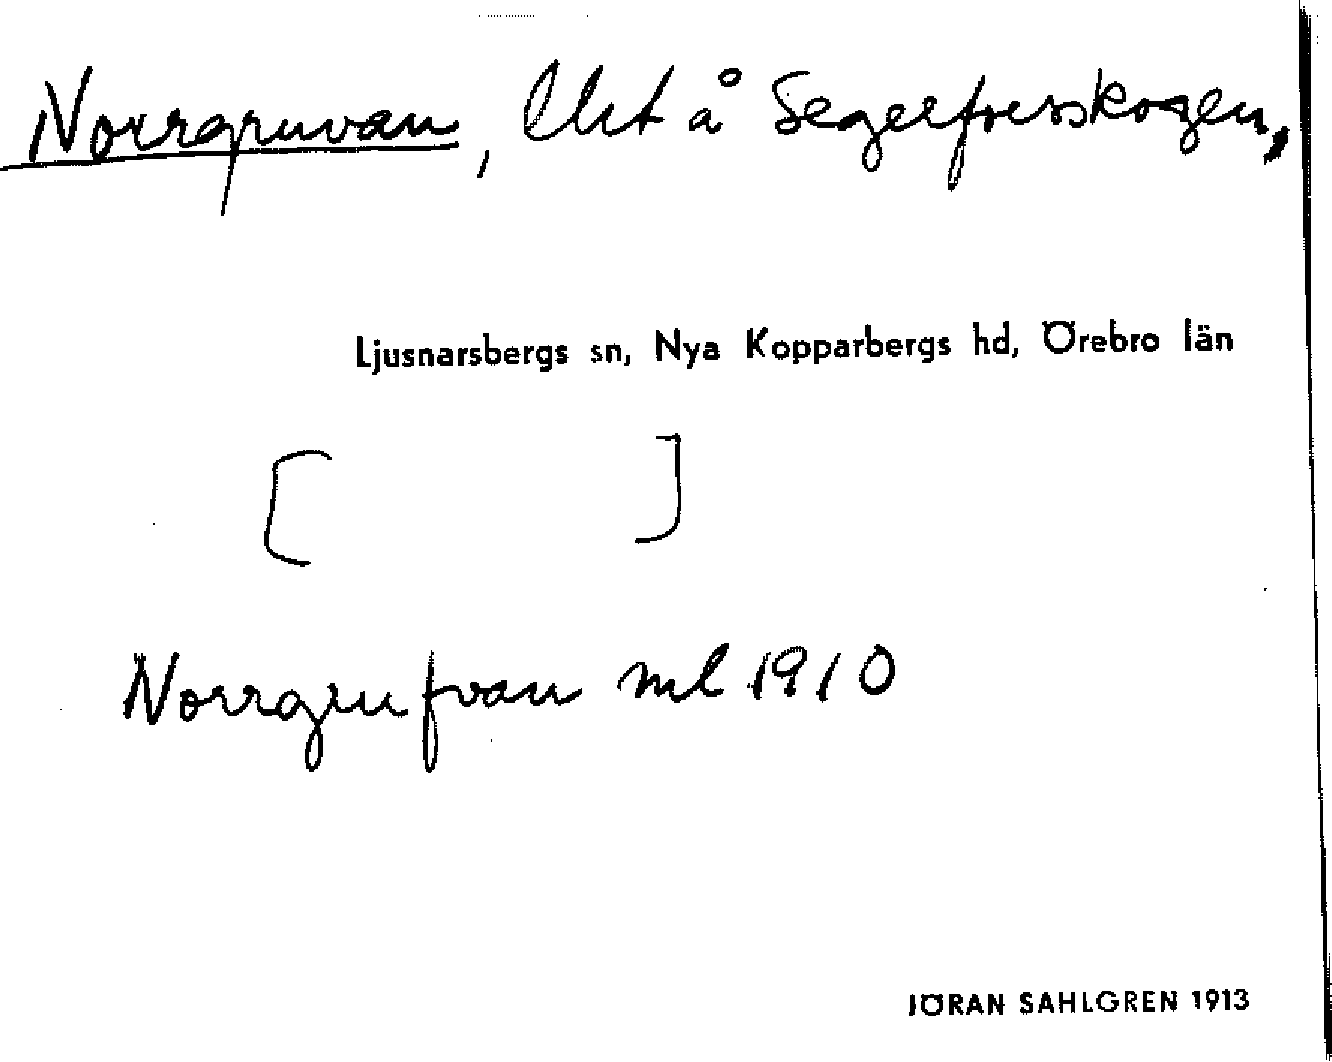 Norrgruvan, lht å Segerforsskogen,
Ljusnarsbergs sn, Nya Kopparbergs hd, Örebro län
[ ]
Norrgrufvan ml 1910
JÖRAN SAHLGREN 1913